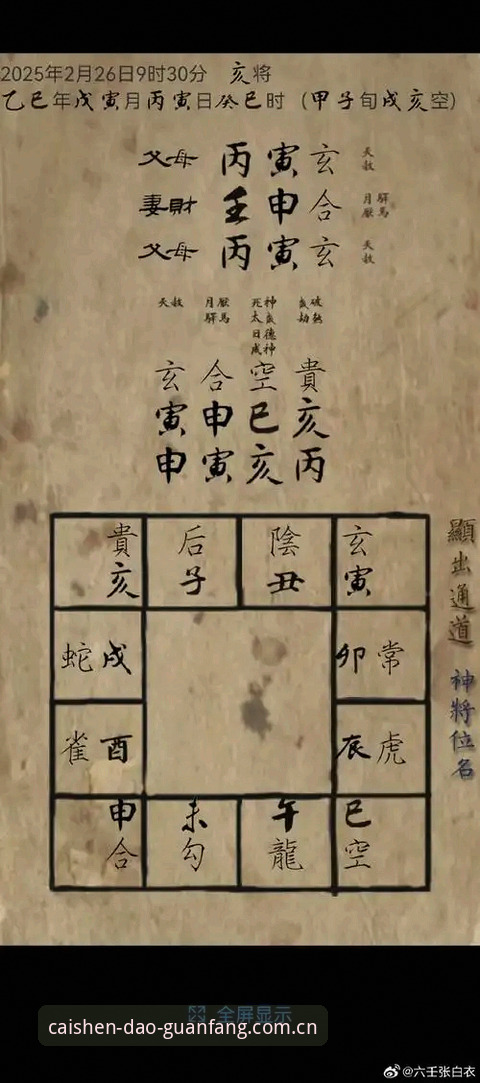 2025年2月26日9时30分 亥将
乙巳年戊寅月丙寅日癸巳时（甲子旬戌亥空）
父母 丙 寅 玄 天赦
妻財 壬 申 合 月厭 驛馬
父母 丙 寅 玄 天赦
天赦 月厭 驛馬
玄 合 空 貴
寅 申 巳 亥
申 寅 亥 丙
貴 后 陰 玄
亥 子 丑 寅
蛇 戌 卯 常
雀 酉 辰 虎
申 未 午 巳
合 勾 龍 空
顯出通道 神將位名
全屏显示
caishen-dao-guanfang.com.cn
@六壬张白衣